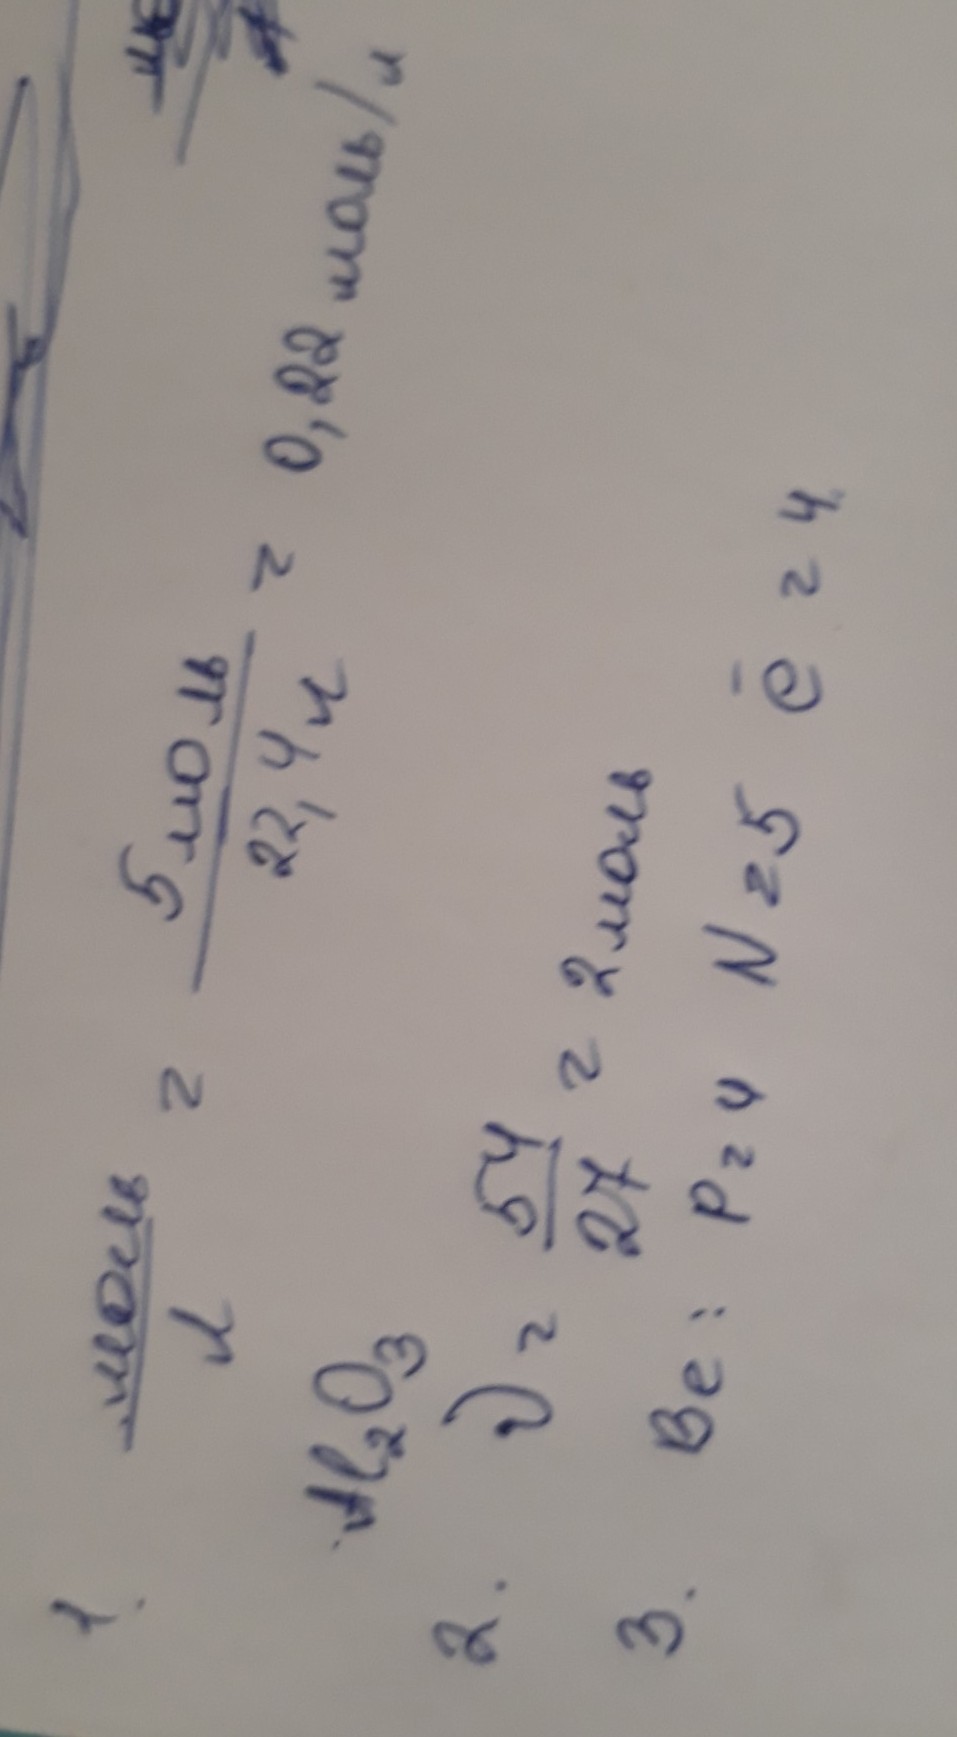 1. моль/л = 5 моль/22,4 л = 0,22 моль/л
Al₂O₃
2. ν = 54/27 = 2 моль
3. Be: P=4 N=5 ē=4